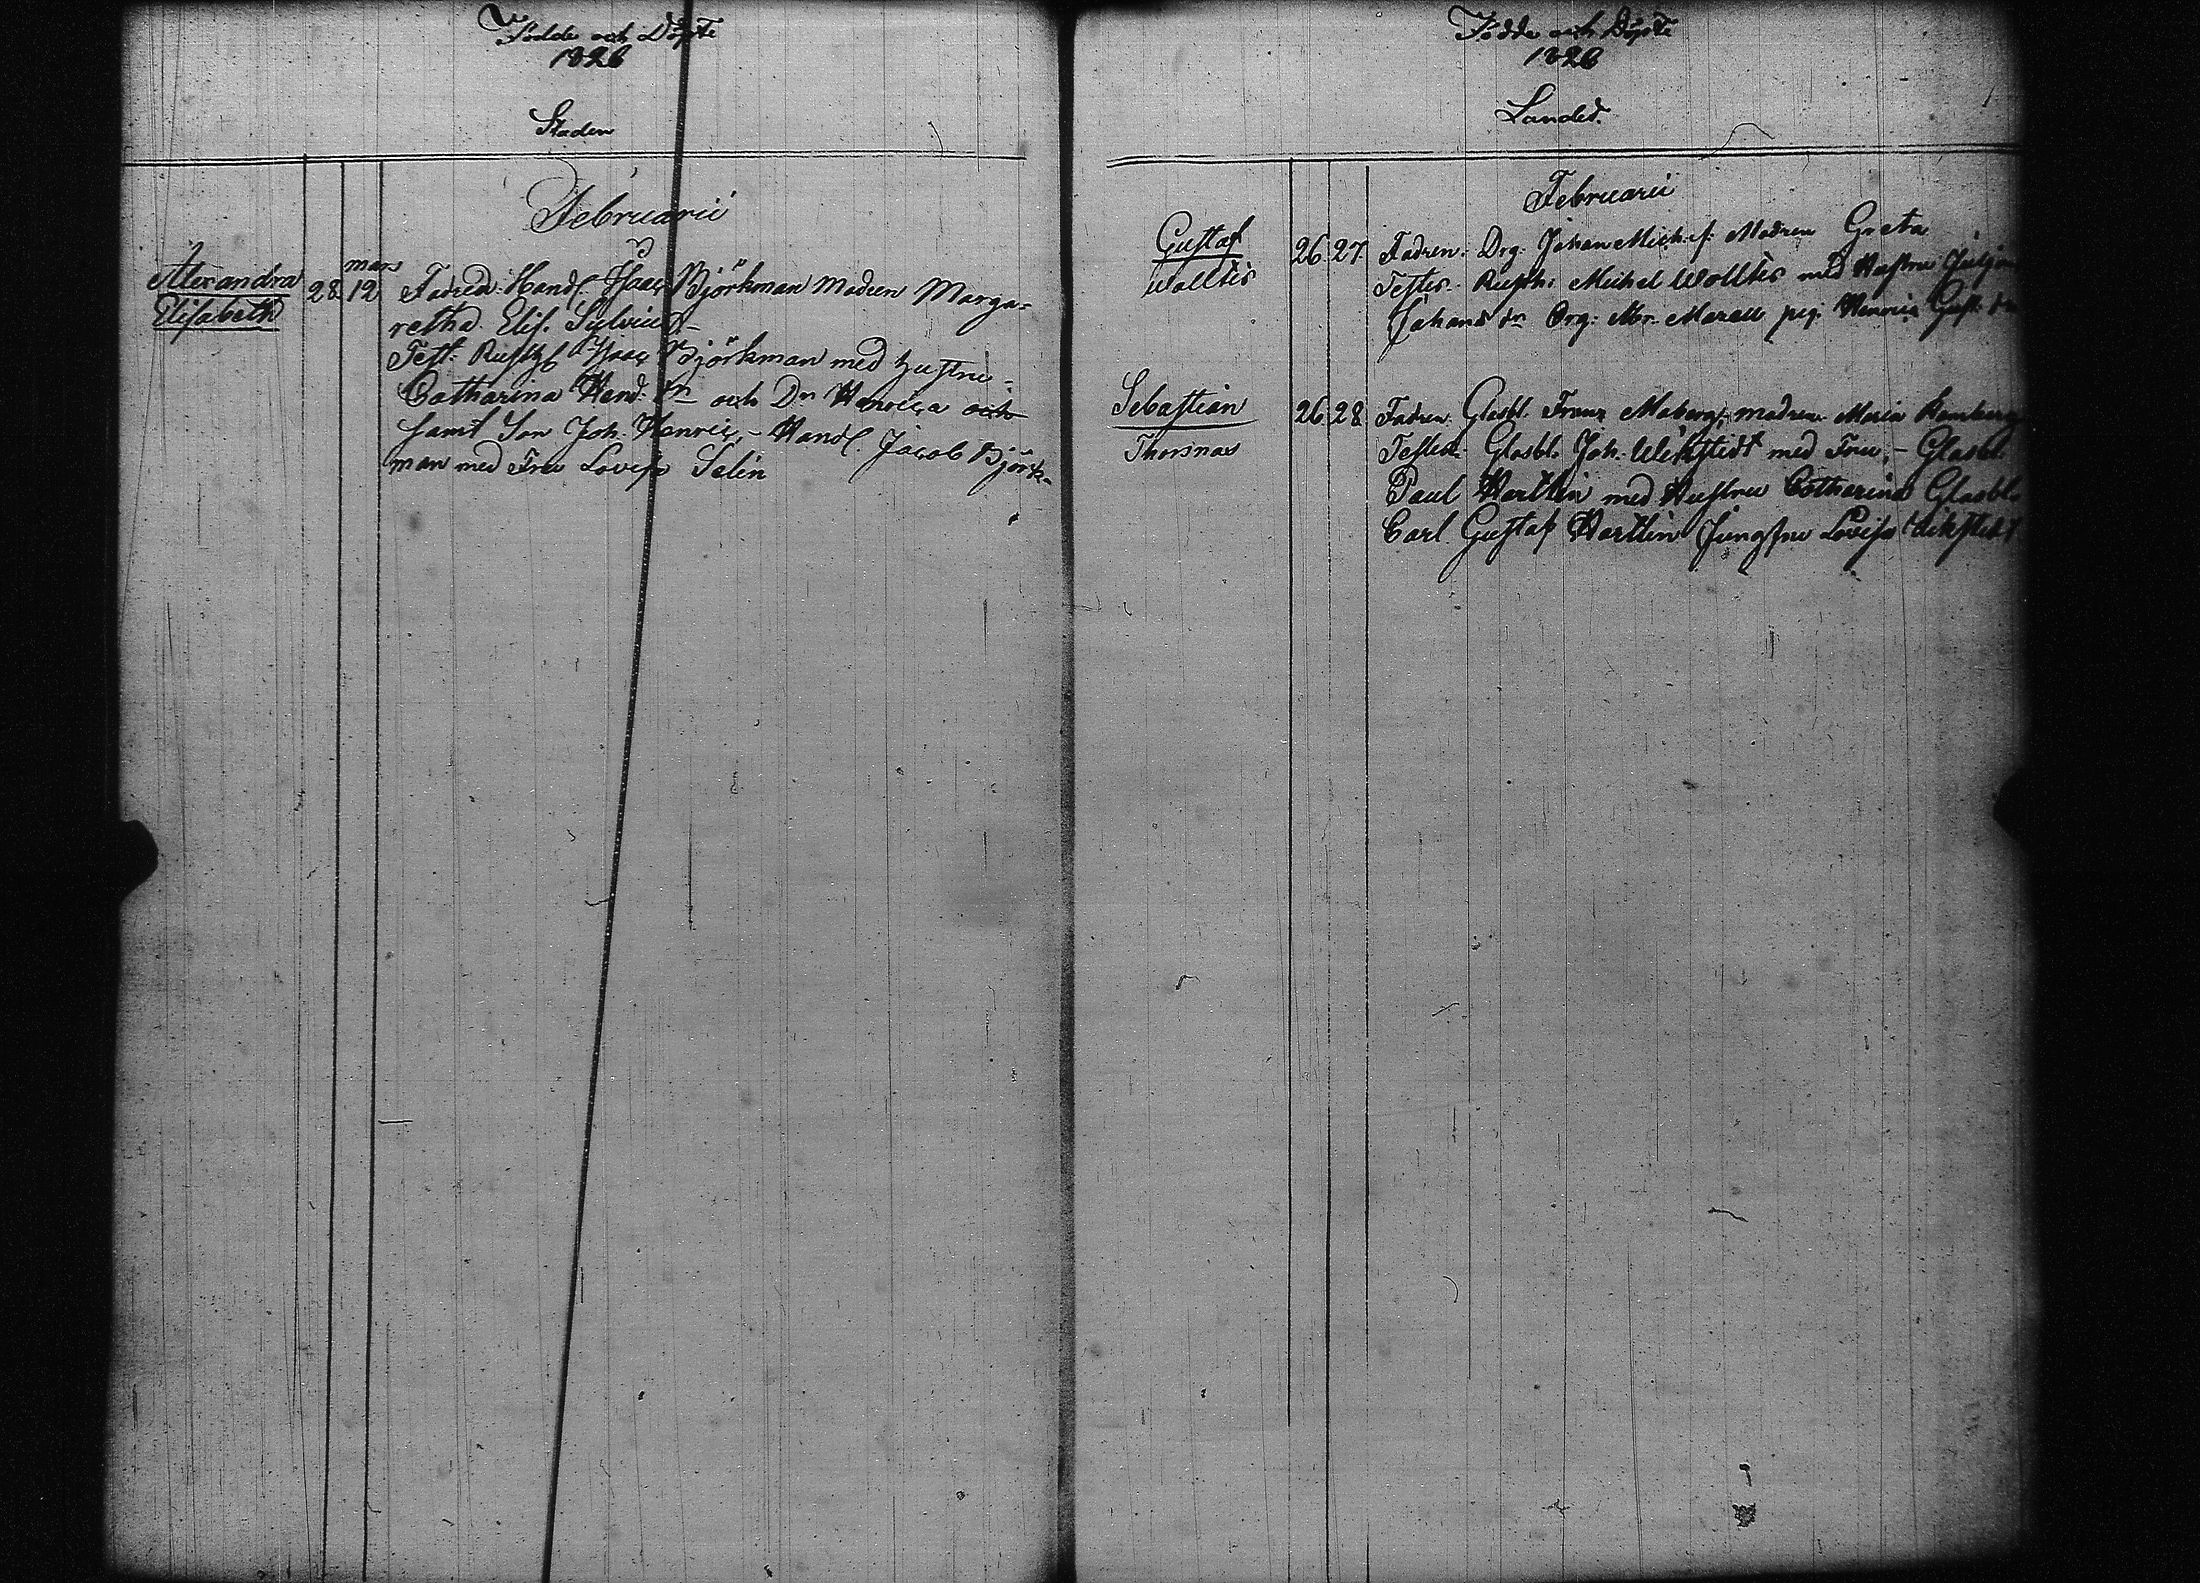 Födde och Döpte
1826
Staden
Februarii
Alexandra
Elisabeth
28
mars
12
Fadren: Handl Isaac Björkman Modren Marga=
retha Elis. Sulvius
Test: Rusth Isaac Björkman med hustru
Catharina Hend: dr och Dr Henrica och
samt Son Joh. Henric, - Handl. Jacob Björk-
man med Fru Lovisa Selin
Födde och Döpte
1826
Landet.
Februarii
Gustaf
Wolltis
26 27
Fadren: Drg. Johan Mich: s: Modren Greta
Testes: Rusth: Michel Wolltis med Hustru
Johans dr Drg: Abr. pig: Henrica Gust: dr
Sebastian
Thorsnäs
26 28
Fadren Glasbl. Franz Moberg, modren Maria
Testes: Glasbl. Joh. Wikstedt med Fru, - Glasbl.
Paul Hartlin med Hustru Catharina Glasbl.
Carl Gustaf Hartlin Jungfru Lovisa Wikstedt